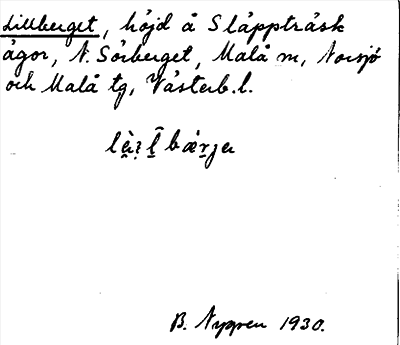 Lillberget, höjd å Släppträsk
ägor, N. Sörberget, Malå m, Norsjö
och Malå tg, Västerb.l.
B. Nygren 1930.